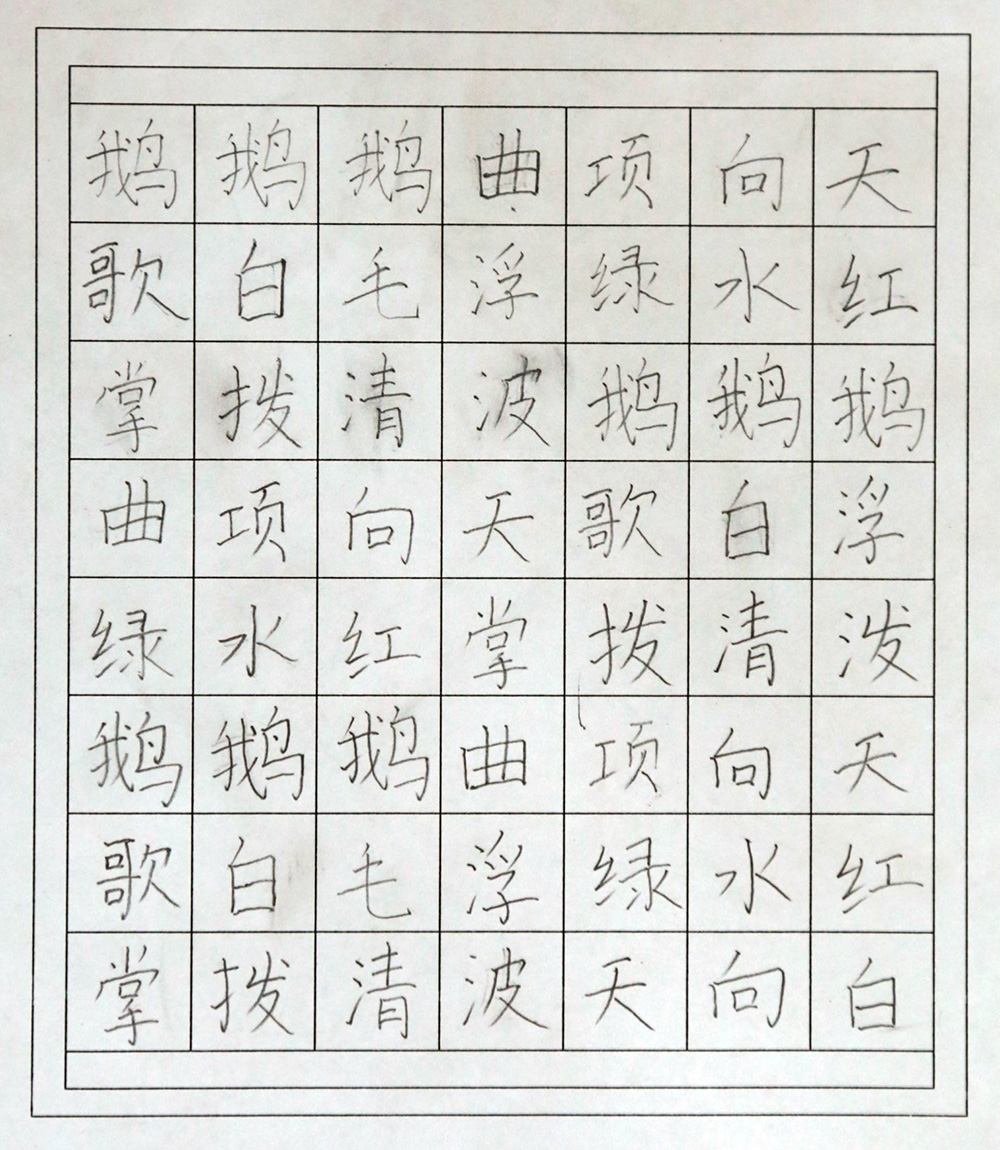 鹅鹅鹅曲项向天
歌白毛浮绿水红
掌拨清波鹅鹅鹅
曲项向天歌白浮
绿水红掌拨清泼
鹅鹅鹅曲项向天
歌白毛浮绿水红
掌拨清波天向白